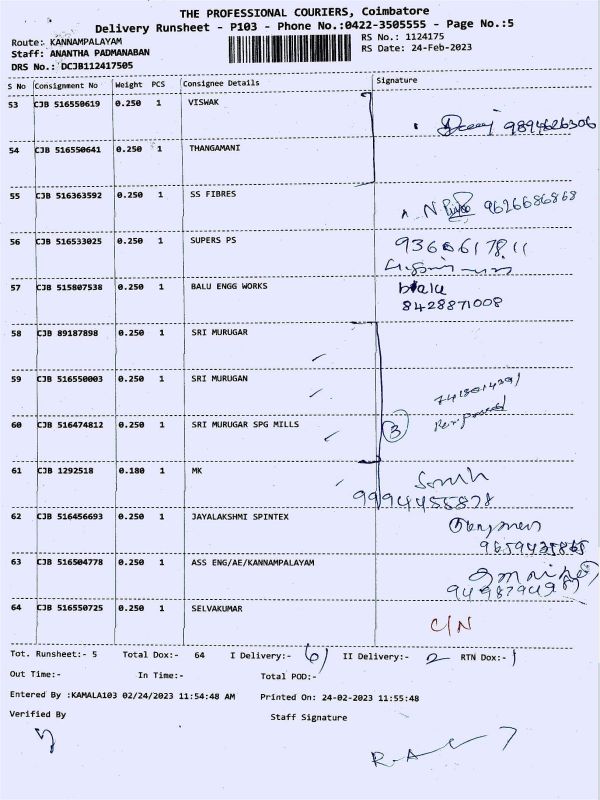 THE PROFESSIONAL COURIERS, Coimbatore
Delivery Runsheet - P103 - Phone No.:0422-3505555 - Page No.:5
Route: KANNAMPALAYAM
RS No.: 1124175
Staff: ANANTHA PADMANABAN
RS Date: 24-Feb-2023
DRS No.: DCJB112417505
S No Consignment No Weight PCS Consignee Details Signature
53 CJB 516550619 0.250 1 VISWAK
9894626306
54 CJB 516550641 0.250 1 THANGAMANI
55 CJB 516363592 0.250 1 SS FIBRES
9626686868
56 CJB 516533025 0.250 1 SUPERS PS
9360617811
57 CJB 515807538 0.250 1 BALU ENGG WORKS
bala
8428871008
58 CJB 89187898 0.250 1 SRI MURUGAR
59 CJB 516550003 0.250 1 SRI MURUGAN
60 CJB 516474812 0.250 1 SRI MURUGAR SPG MILLS
3
61 CJB 1292518 0.180 1 MK
62 CJB 516456693 0.250 1 JAYALAKSHMI SPINTEX
63 CJB 516504778 0.250 1 ASS ENG/AE/KANNAMPALAYAM
64 CJB 516550725 0.250 1 SELVAKUMAR
C/N
Tot. Runsheet:- 5 Total Dox:- 64 I Delivery:- 61 II Delivery:- 2 RTN Dox:- 1
Out Time:- In Time:- Total POD:-
Entered By :KAMALA103 02/24/2023 11:54:48 AM Printed On: 24-02-2023 11:55:48
Verified By Staff Signature